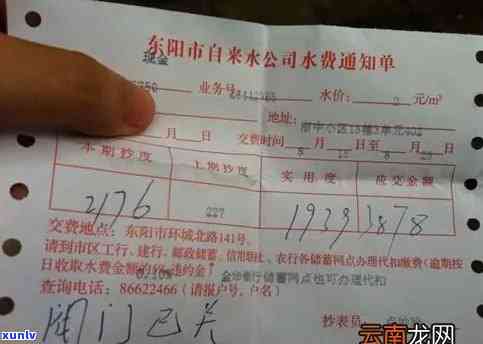 东阳市自来水公司水费通知单
现金
业务号 水价: 2 元/m³
地址:
月 日 交费时间 8 月 日至 8 月 日
本期抄度 上期抄度 实用度 应交金额
2176 227 1939 3878
交费地点: 东阳市环城北路141号。
请到市区工行、建行、邮政储蓄、信用联社、农行各储蓄网点办理代扣缴费(逾期按
日收取水费金额的 违约金 金华银行储蓄网点也可办理代扣
查询电话: 86622466 (请报户号, 户名)
闸门已关 抄表员:
xunlv 云南龙网